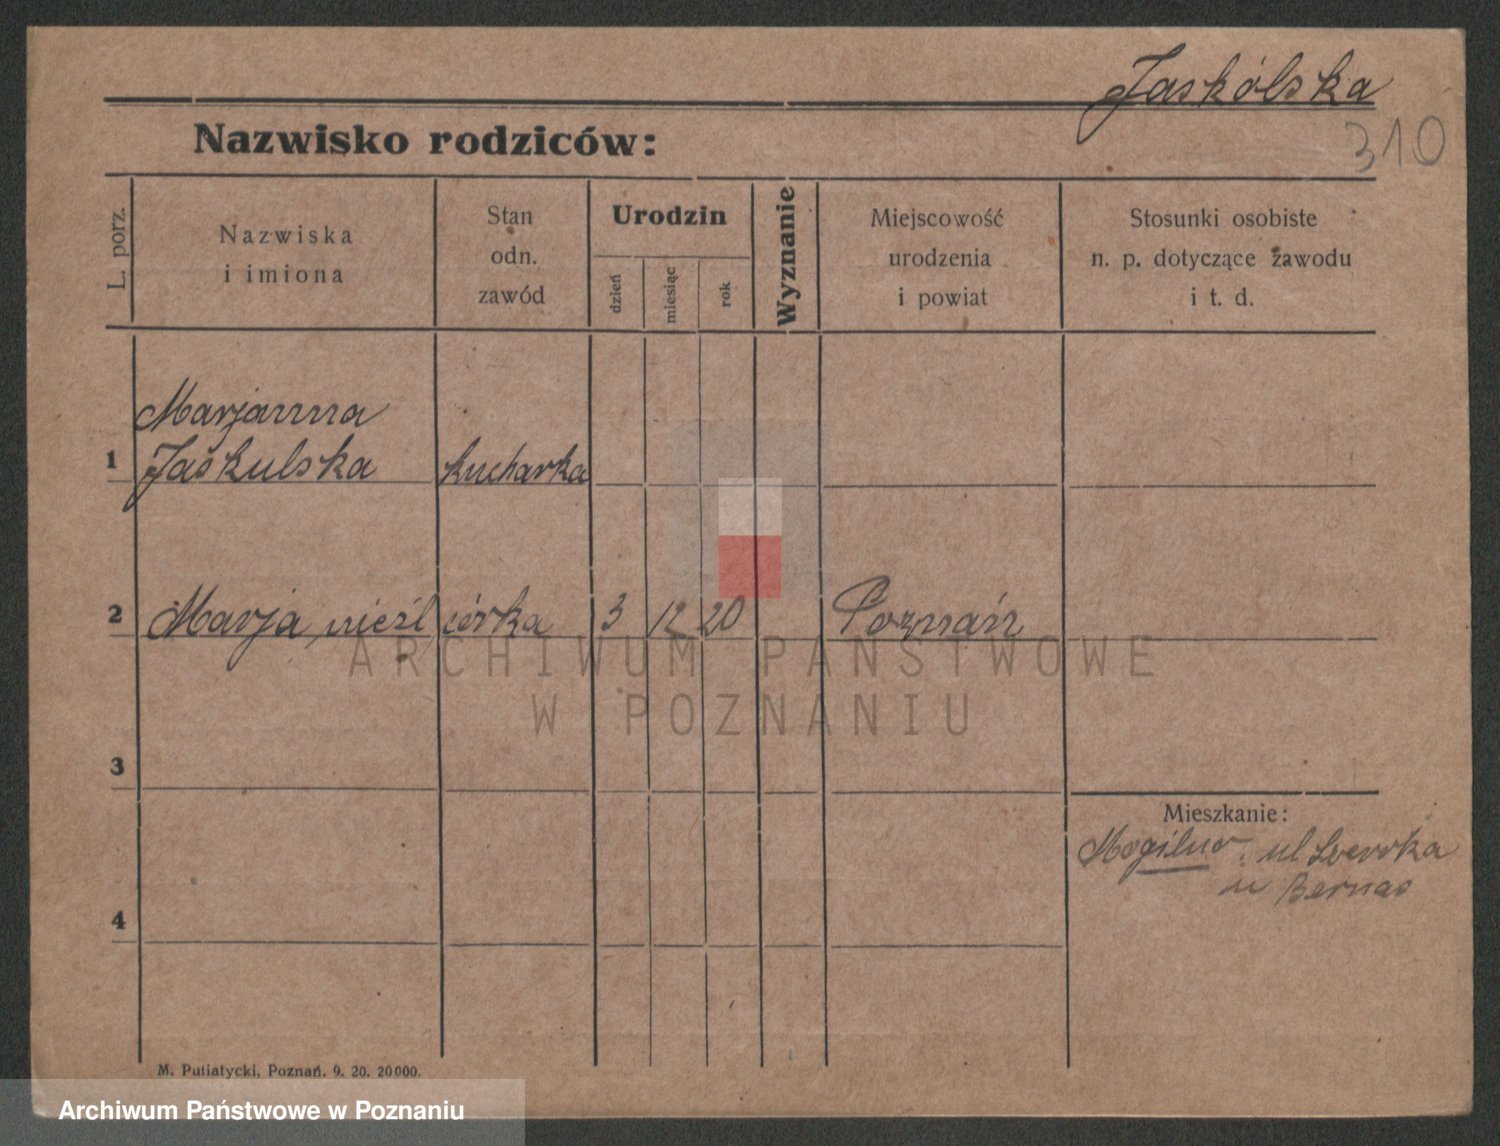 Jaskólska
310
Nazwisko rodziców:
L. porz.
Nazwiska
i imiona
Stan
odn.
zawód
Urodzin
dzień
miesiąc
rok
Wyznanie
Miejscowość
urodzenia
i powiat
Stosunki osobiste
n. p. dotyczące zawodu
i t. d.
Marjanna
1 Jaskulska kucharka
2 Marja nieśl córka 3 12 20 Poznań
ARCHIWUM PAŃSTWOWE
W POZNANIU
3
Mieszkanie:
Mogilno ul
u Bernas
4
M. Putiatycki, Poznań. 9. 20. 20000.
Archiwum Państwowe w Poznaniu